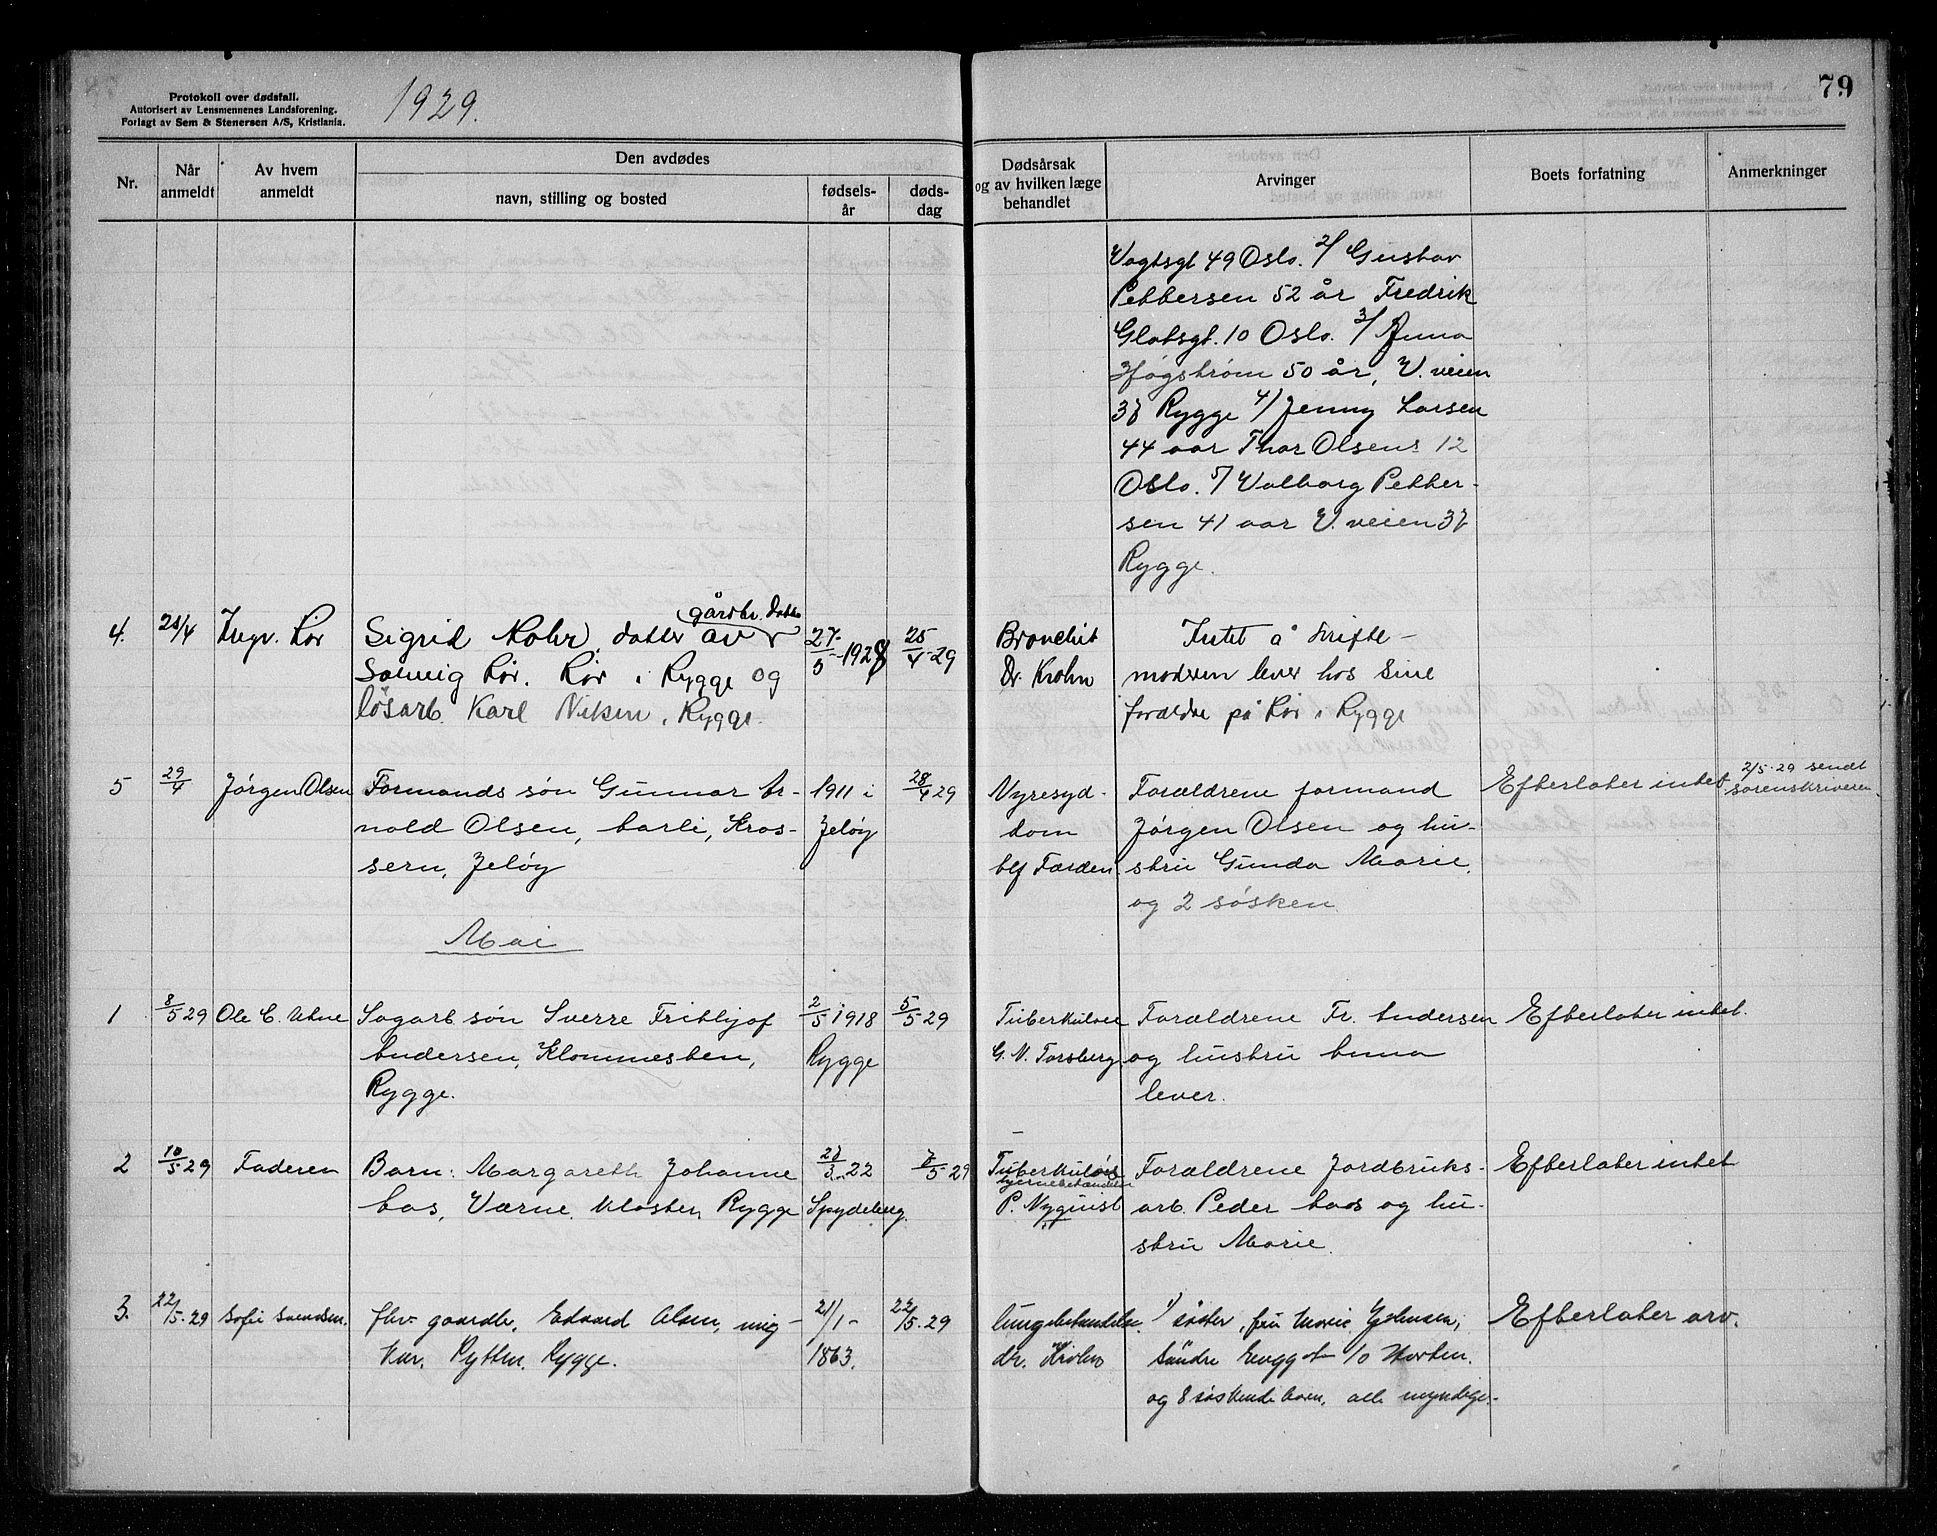 Protokoll over dødsfall.
Autorisert av Lensmennenes Landsforening.
Forlagt av Sem & Stenersen A/S, Kristiania.
1929.
79
Nr.
Når anmeldt
Av hvem anmeldt
Den avdødes
navn, stilling og bosted
fødsels-år
døds-dag
Dødsårsak og av hvilken læge behandlet
Arvinger
Boets forfatning
Anmerkninger
Vogtsgt 49 Oslo. 2/ Gustav
Pettersen 52 år Fredrik
Glatsgt. 10 Oslo. 3/ Anna
Høgstrøm 50 år, V. veien
37 Rygge 4/ Jenny Larsen
44 aar Thar Olsens 12
Oslo. 5/ Valborg Petter-
sen 41 aar V. veien 37
Rygge.
4. Ingv. Rør Sigrid Rohr, datter av gårdbr. datter 27/5-1928 25/4-29 Bronchit Intet å skifte-
Solveig Rør. Rør i Rygge og Dr. Krohn moderen lever hos sine
løsarb. Karl i Rygge. forældre på Rør i Rygge
5 29/4 Jørgen Olsen Formands søn Gunnar Ar- 1911 i 28/4 29 Nyresyg- Forældrene formand Efterlater intet 2/5-29 sendt
nold Olsen, Kros- Jeløy dom Jørgen Olsen og hu- sorenskriveren.
sern, Jeløy Farden stru Gunda Marie.
og 2 søsken
Mai
1 8/5 29 Ole C. Sagarb. søn Sverre Frithjof 2/5 1918 5/5 29 Tuberkulose Forældrene Fr. Andersen Efterlater intet.
Andersen, Klommesten, Rygge G. N. Torsberg og hustru Anna
Rygge. lever.
2 10/5 29 Faderen Barn: Margareth Johanne 22 7/5 29 Tuberkuløs hjernebetændelse Forældrene Jordbruks- Efterlater intet
Aas, Værne Kloster, Rygge Spydeberg. P. Nyquist arb. Peder Aas og hu-
stru Marie.
3. 22/5-29 Sofie Svendsen. fhv. gaardbr. Edvard Olsen, ung- 21/1- 22/5-29 lungebetændelse. 1/ søster, fru Marie Efterlater arv.
kar. Rygge. 1863. dr. Krohn Søndre 10 Horten.
og 8 søskendebarn, alle myndige.-